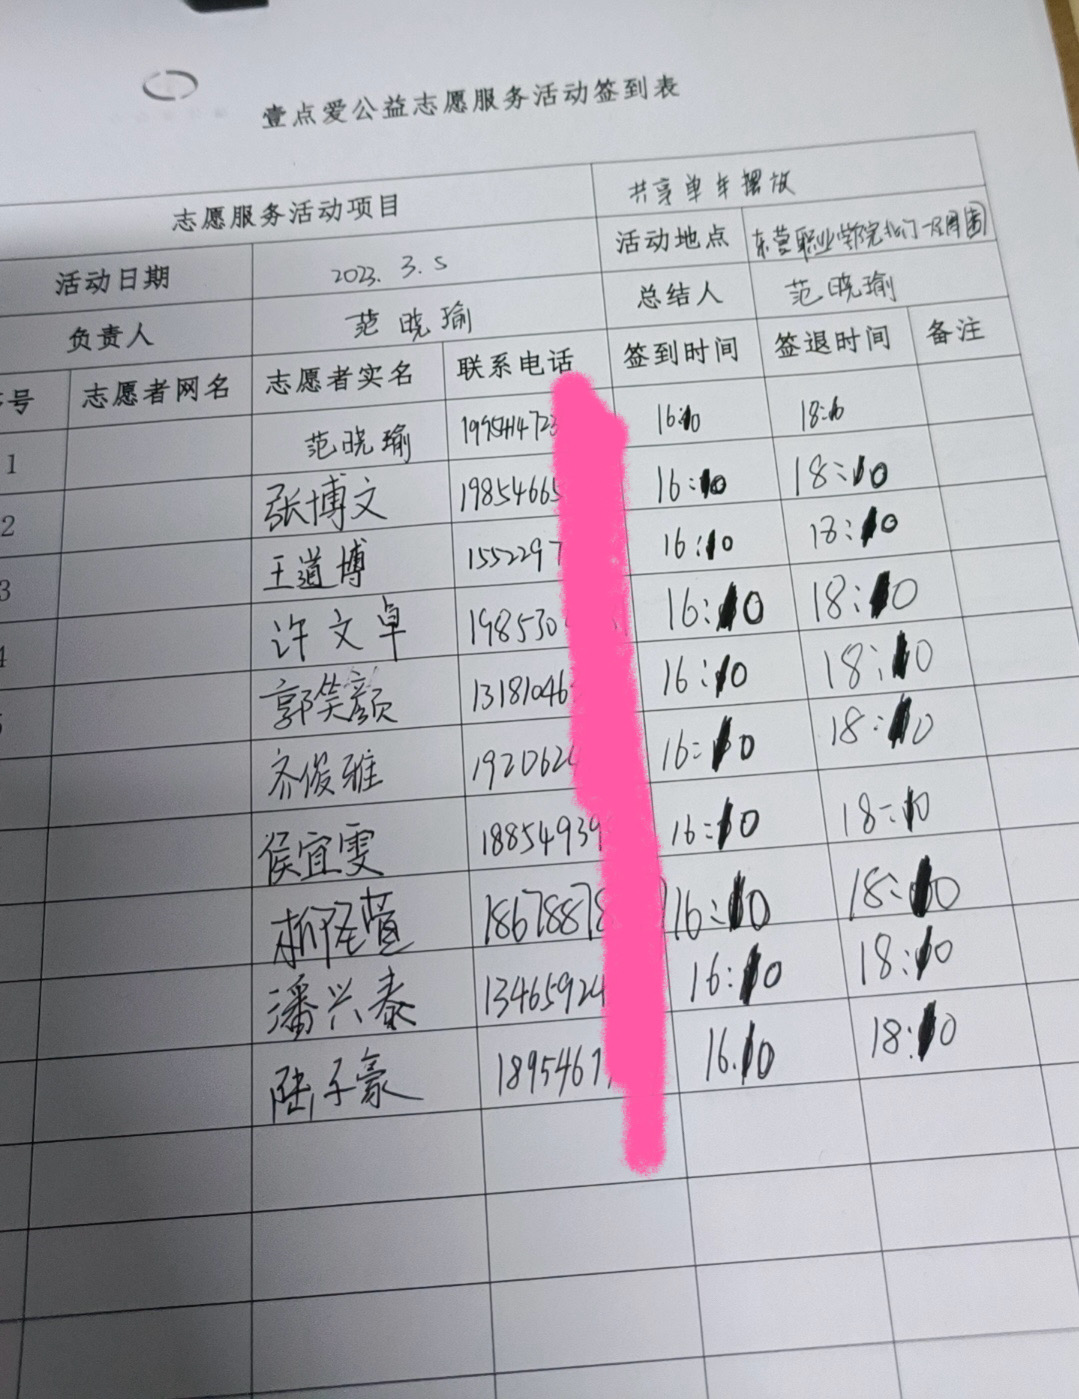 壹点爱公益志愿服务活动签到表
志愿服务活动项目 共享单车摆放
活动日期 2023. 3. 5 活动地点 东营职业学院北门一段周围
负责人 范晓瑜 总结人 范晓瑜
号 志愿者网名 志愿者实名 联系电话 签到时间 签退时间 备注
1 范晓瑜 16:10 18:10
2 张博文 19854665 16:10 18:10
3 王道博 1552297 16:10 18:10
4 许文卓 198530 16:10 18:10
郭笑颜 13181046 16:10 18:10
齐俊雅 192062 16:10 18:10
侯宜雯 1885493 16:10 18:10
18678878 16:10 18:10
潘兴泰 13465924 16:10 18:10
陆子豪 1895467 16.10 18:10